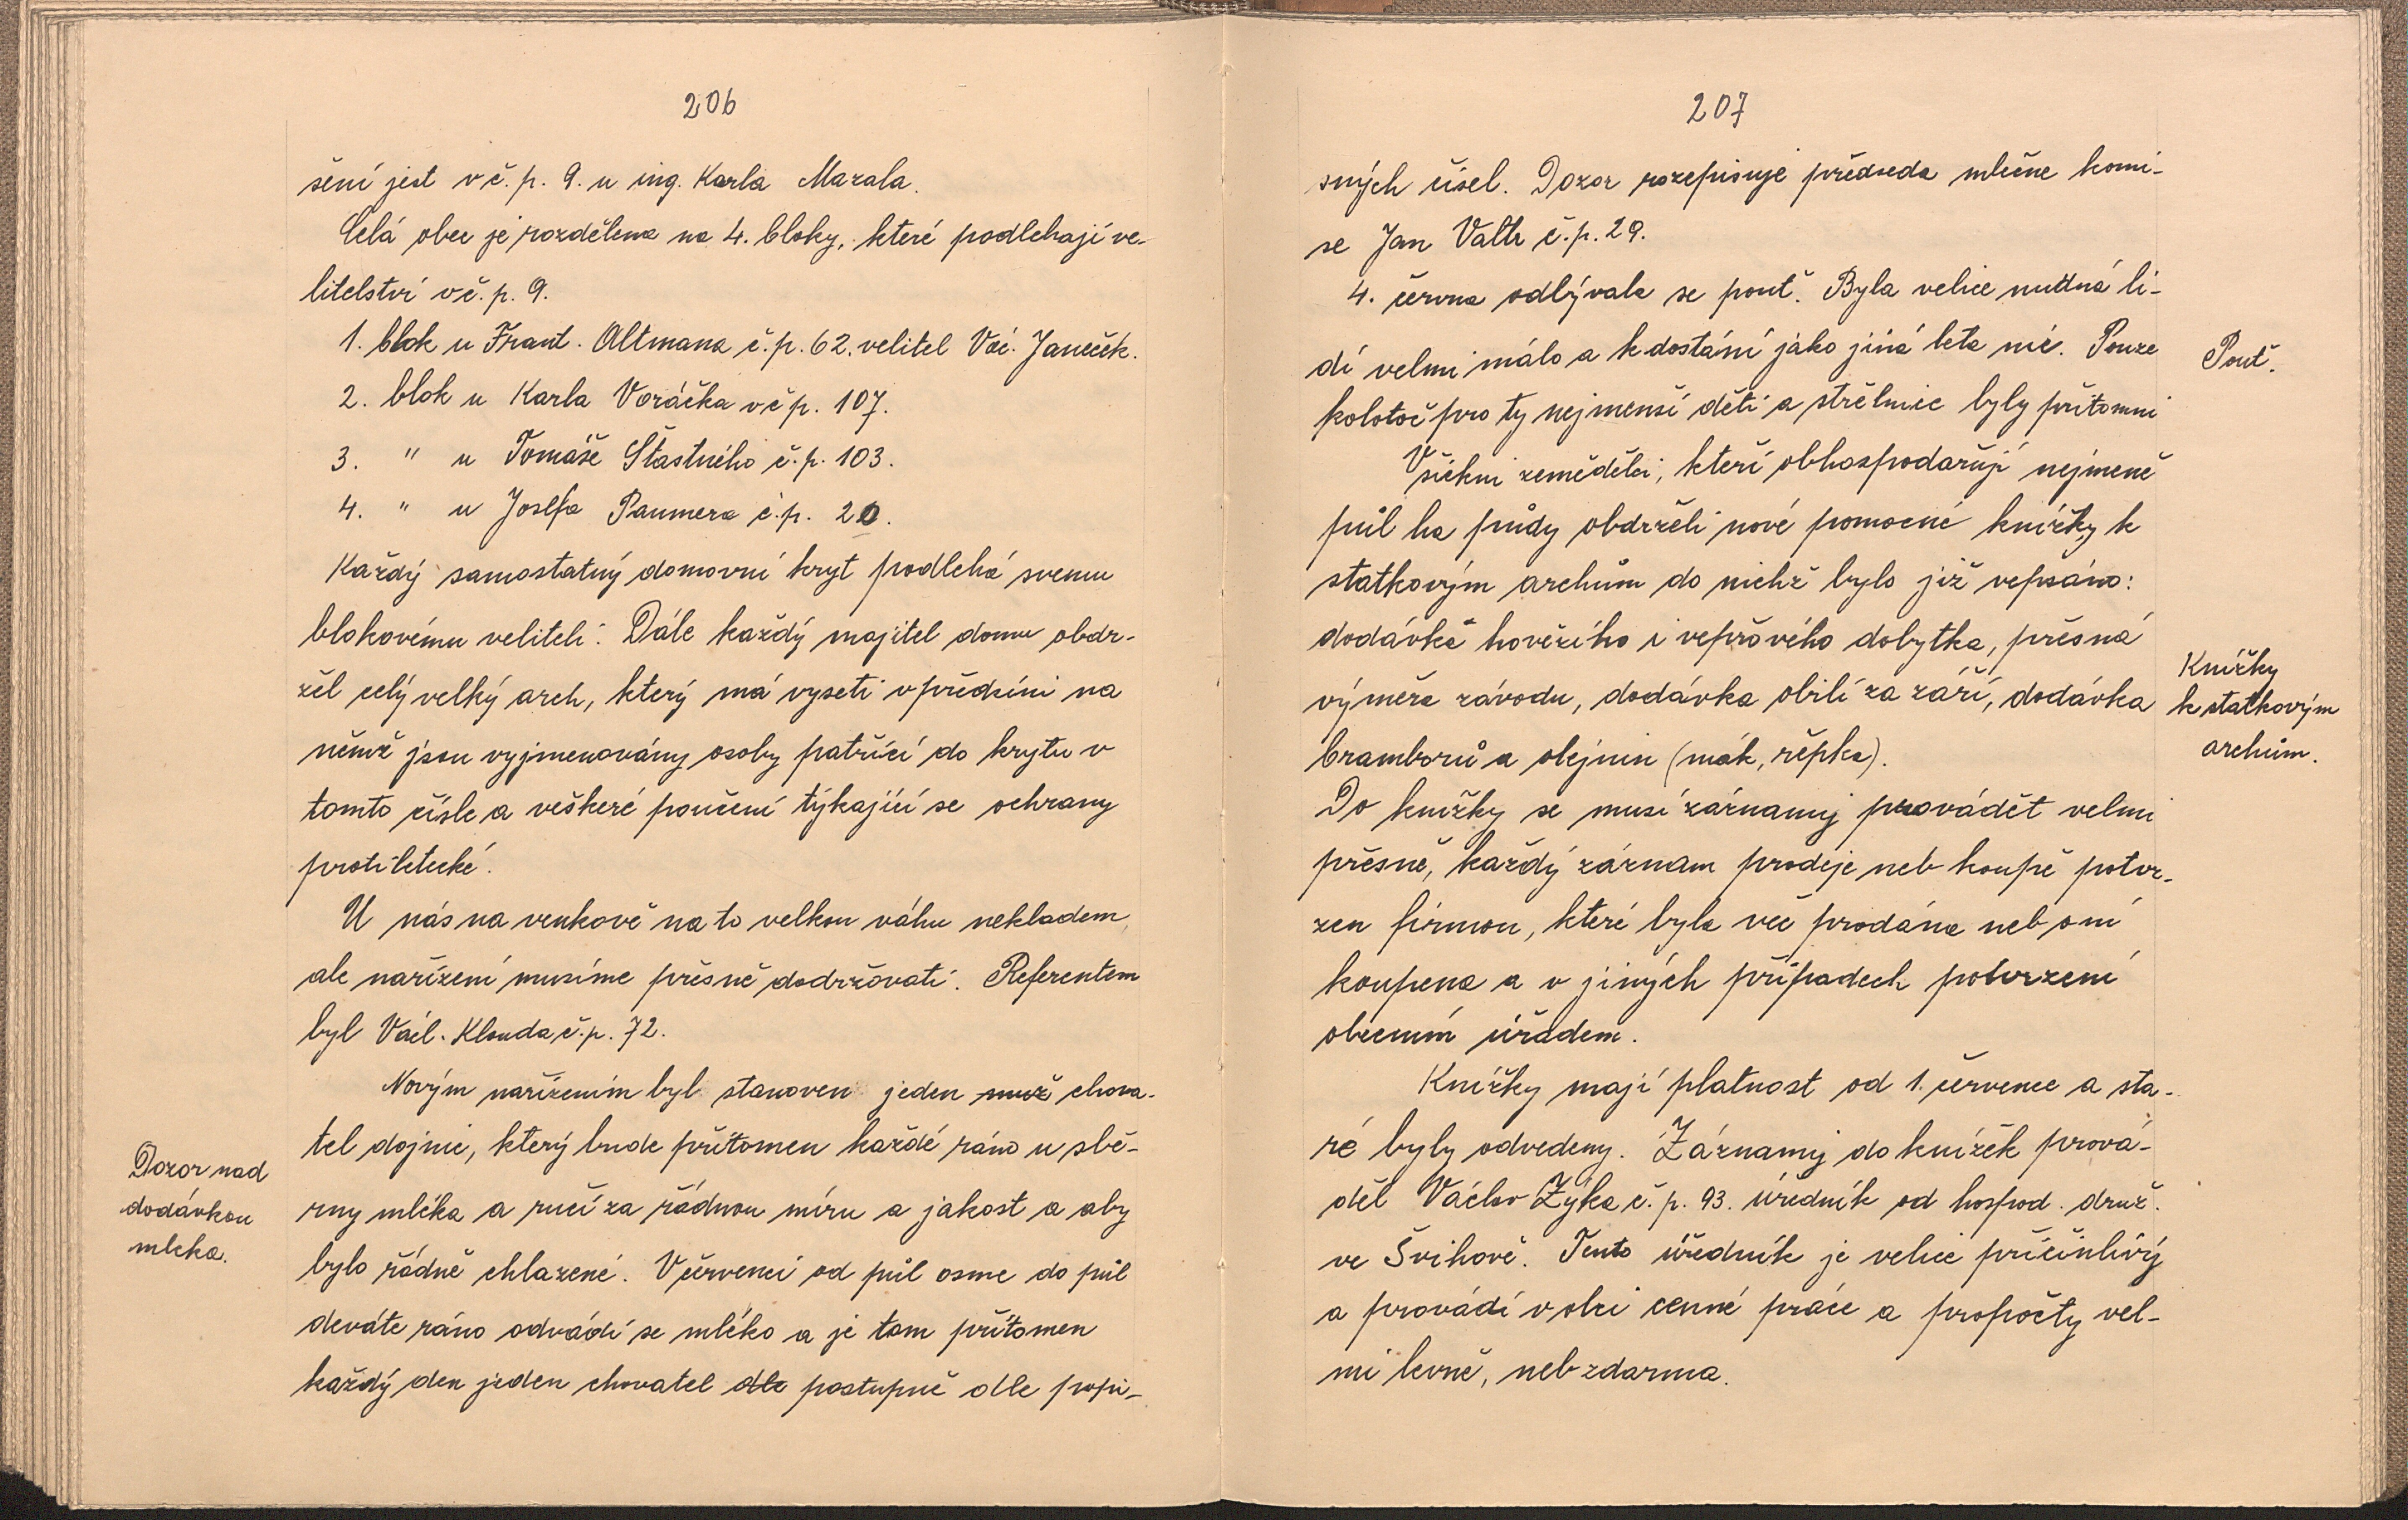 206
šení jest v č. p. 9. u ing. Karla Mazala.
Celá obec je rozdělena na 4. bloky, které podlehají ve-
litelství v č. p. 9.
1. blok u Frant. Altmana č.p. 62. velitel Vác. Janeček.
2. blok u Karla Voráčka v č p. 107.
3. " u Tomáše Šťastného č.p. 103.
4. " u Joselfa Paumera č.p. 20.
Každý samostatný domovní kryt podlehá svemu
blokovému veliteli. Dále každý majitel domu obdr-
žel celý velký arch, který má vyseti v předsíni na
němž jsou vyjmenovány osoby patřící do krytu v
tomto čísle a veškeré poučení týkající se ochrany
protiletecké.
U nás na venkově na to velkou váhu nekladem,
ale nařízení musíme přesně dodržovati. Referentem
byl Václ. Klouda č.p. 72.
Novým nařízením byl stanoven jeden muž chova-
tel dojnic, který bude přítomen každé ráno u sbě-
Dozor nad
dodávkou
mleka.
rny mléka a ručí za řádnou míru a jakost a aby
bylo řádně chlazené. V červenci od půl osme do půl
deváte ráno odvádí se mléko a je tam přítomen
každý den jeden chovatel dle postupně dle popi-
207
sných čísel. Dozor rozepisuje předseda mlečne komi-
se Jan Valtr č.p. 29.
4. června odbývala se pouť. Byla velice nudná li-
dí velmi málo a k dostání jako jiná leta nic. Pouze
Pouť.
kolotoč pro ty nejmenší děti a střelnice byly přítomni
Všickni zemědělci, kteří obhospodařují nejmeně
půl ha půdy obdrželi nové pomocné knížky k
statkovým archům do nichž bylo již vepsáno:
dodávka hovězího i vepřového dobytka, přesná
výměra závodu, dodávka obilí za září, dodávka
Knížky
k statkovým
archům.
bramborů a olejnin (mák, řepka).
Do knížky se musí záznamy provádět velmi
přesně, každý záznam prodeje neb koupě potvr-
zen firmou, které byla vec prodána neb oní
koupena a v jiných případech potvrzení
obecním úřadem.
Knížky mají platnost od 1. července a sta-
ré byly odvedeny. Záznamy do knížek prová-
děl Václav Zýka č.p. 93. úředník od hospod. druž.
ve Švihově. Tento úředník je velice přičinlivý
a provádí v obci cenné práce a propočty vel-
mi levně, neb zdarma.